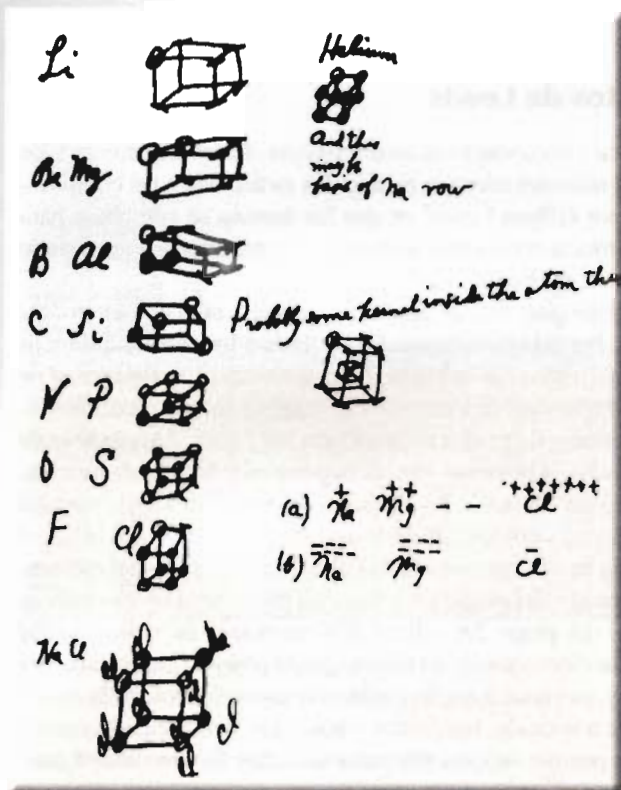 Li
Helium
and this
might be
base of Na row
Be Mg
B Al
C Si
Probably some kernel inside the atom thus
N P
O S
F Cl
(a) + Na ++ Mg - - +++++++ Cl
(b) ---- Na ---- Mg - Cl
Na Cl